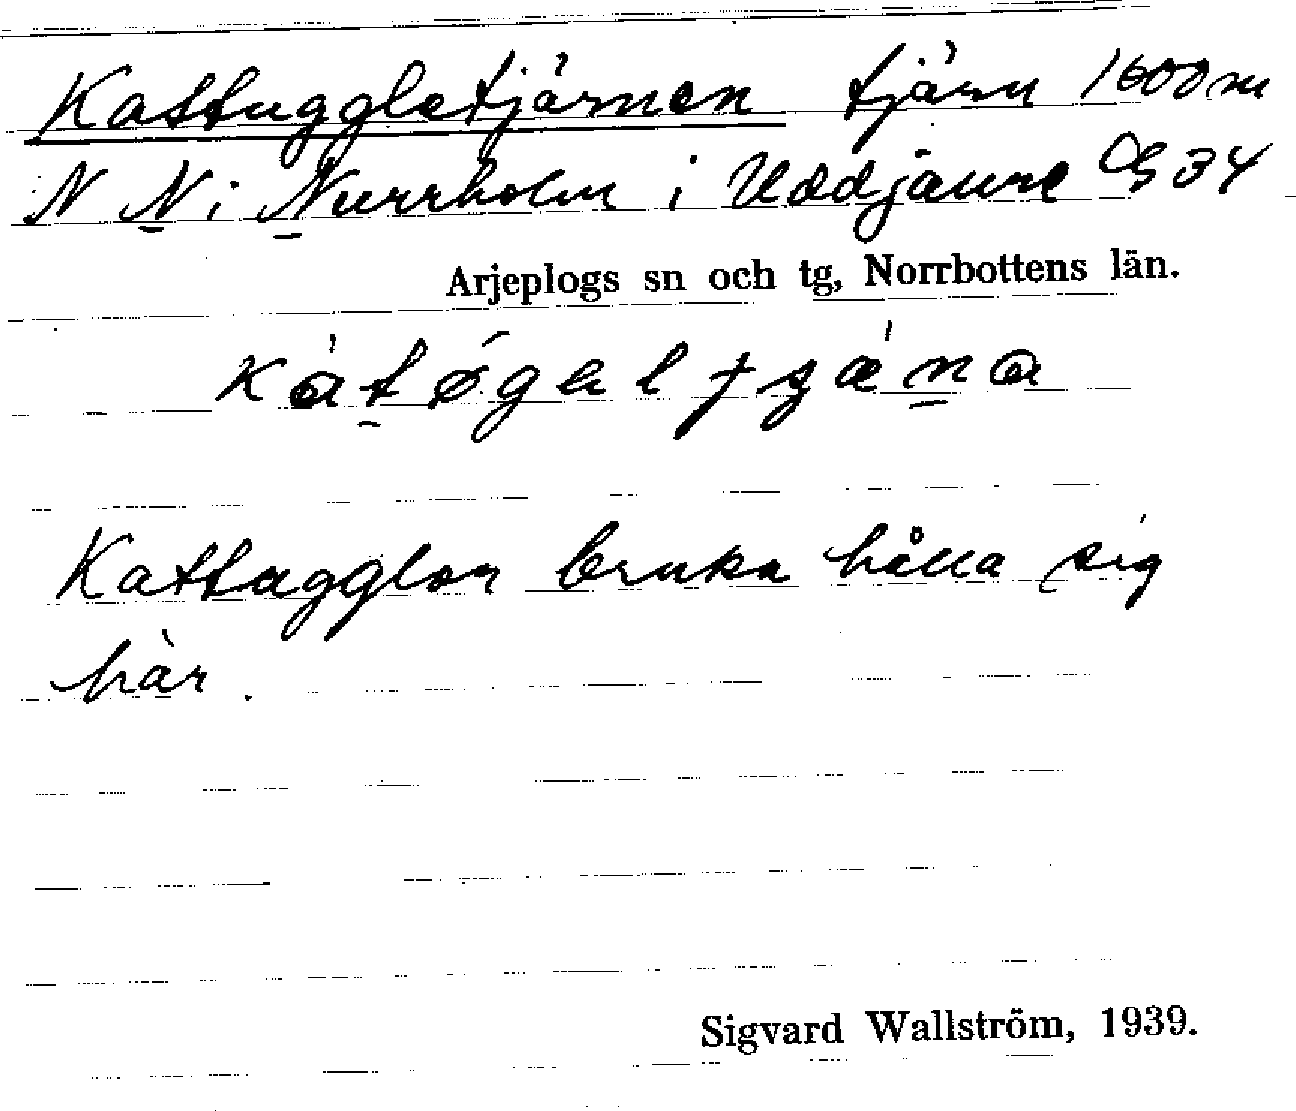 Kattuggletjärnen tjärn 1600 m
N N i Nurrholm i Uddjaure G 34
Arjeplogs sn och tg, Norrbottens län.
Kattugglor bruka hålla sig
här.
Sigvard Wallström, 1939.